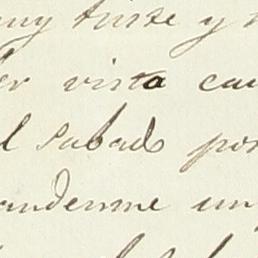 muy triste y
er vista cau
l sabado por
andenme un